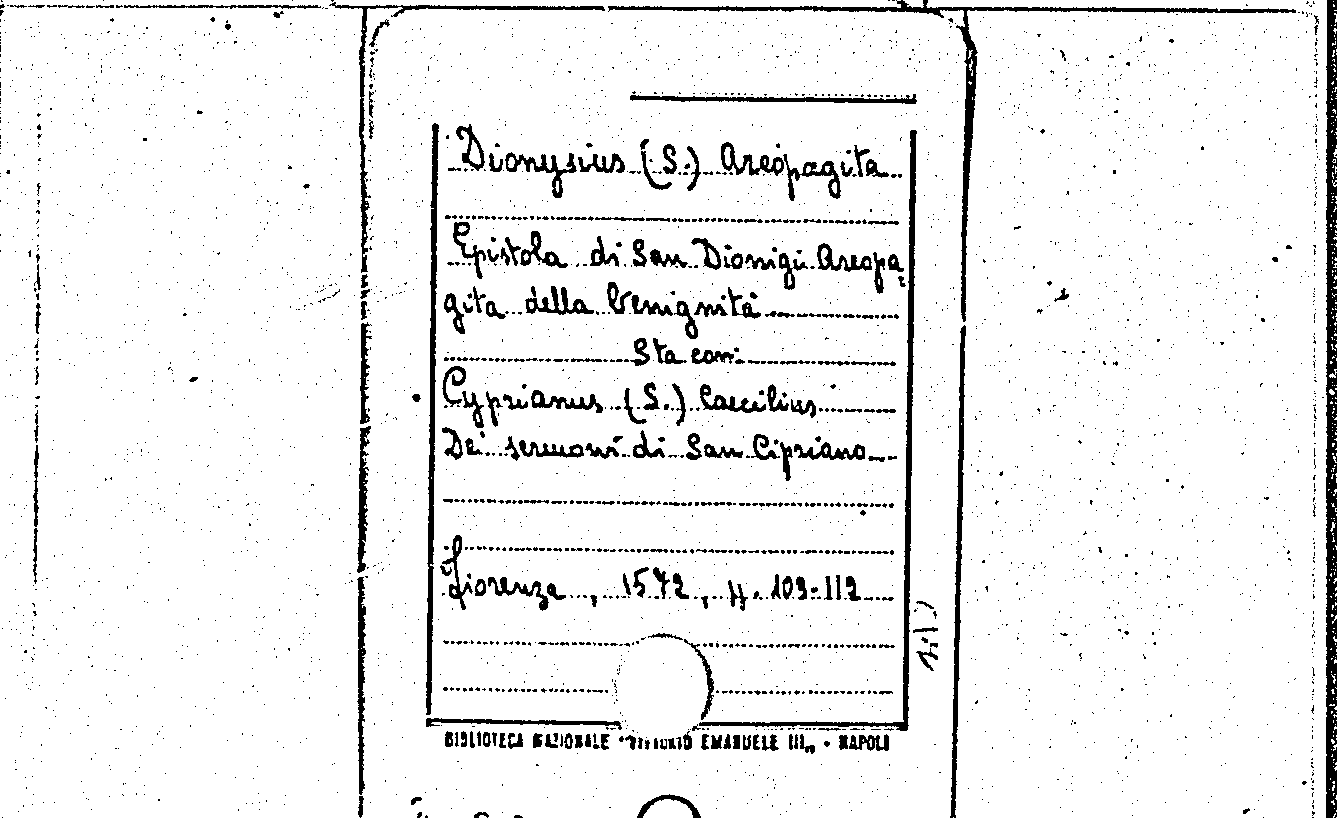 Dionysius (S.) Areopagita
Epistola di San Dionigi Areopa=
gita della benignità
Sta con:
Cyprianus (S.) Caecilius
Dei sermoni di San Cipriano
Fiorenza, 1572, ff. 109-112
BIBLIOTECA NAZIONALE "VITTORIO EMANUELE III„ - NAPOLI